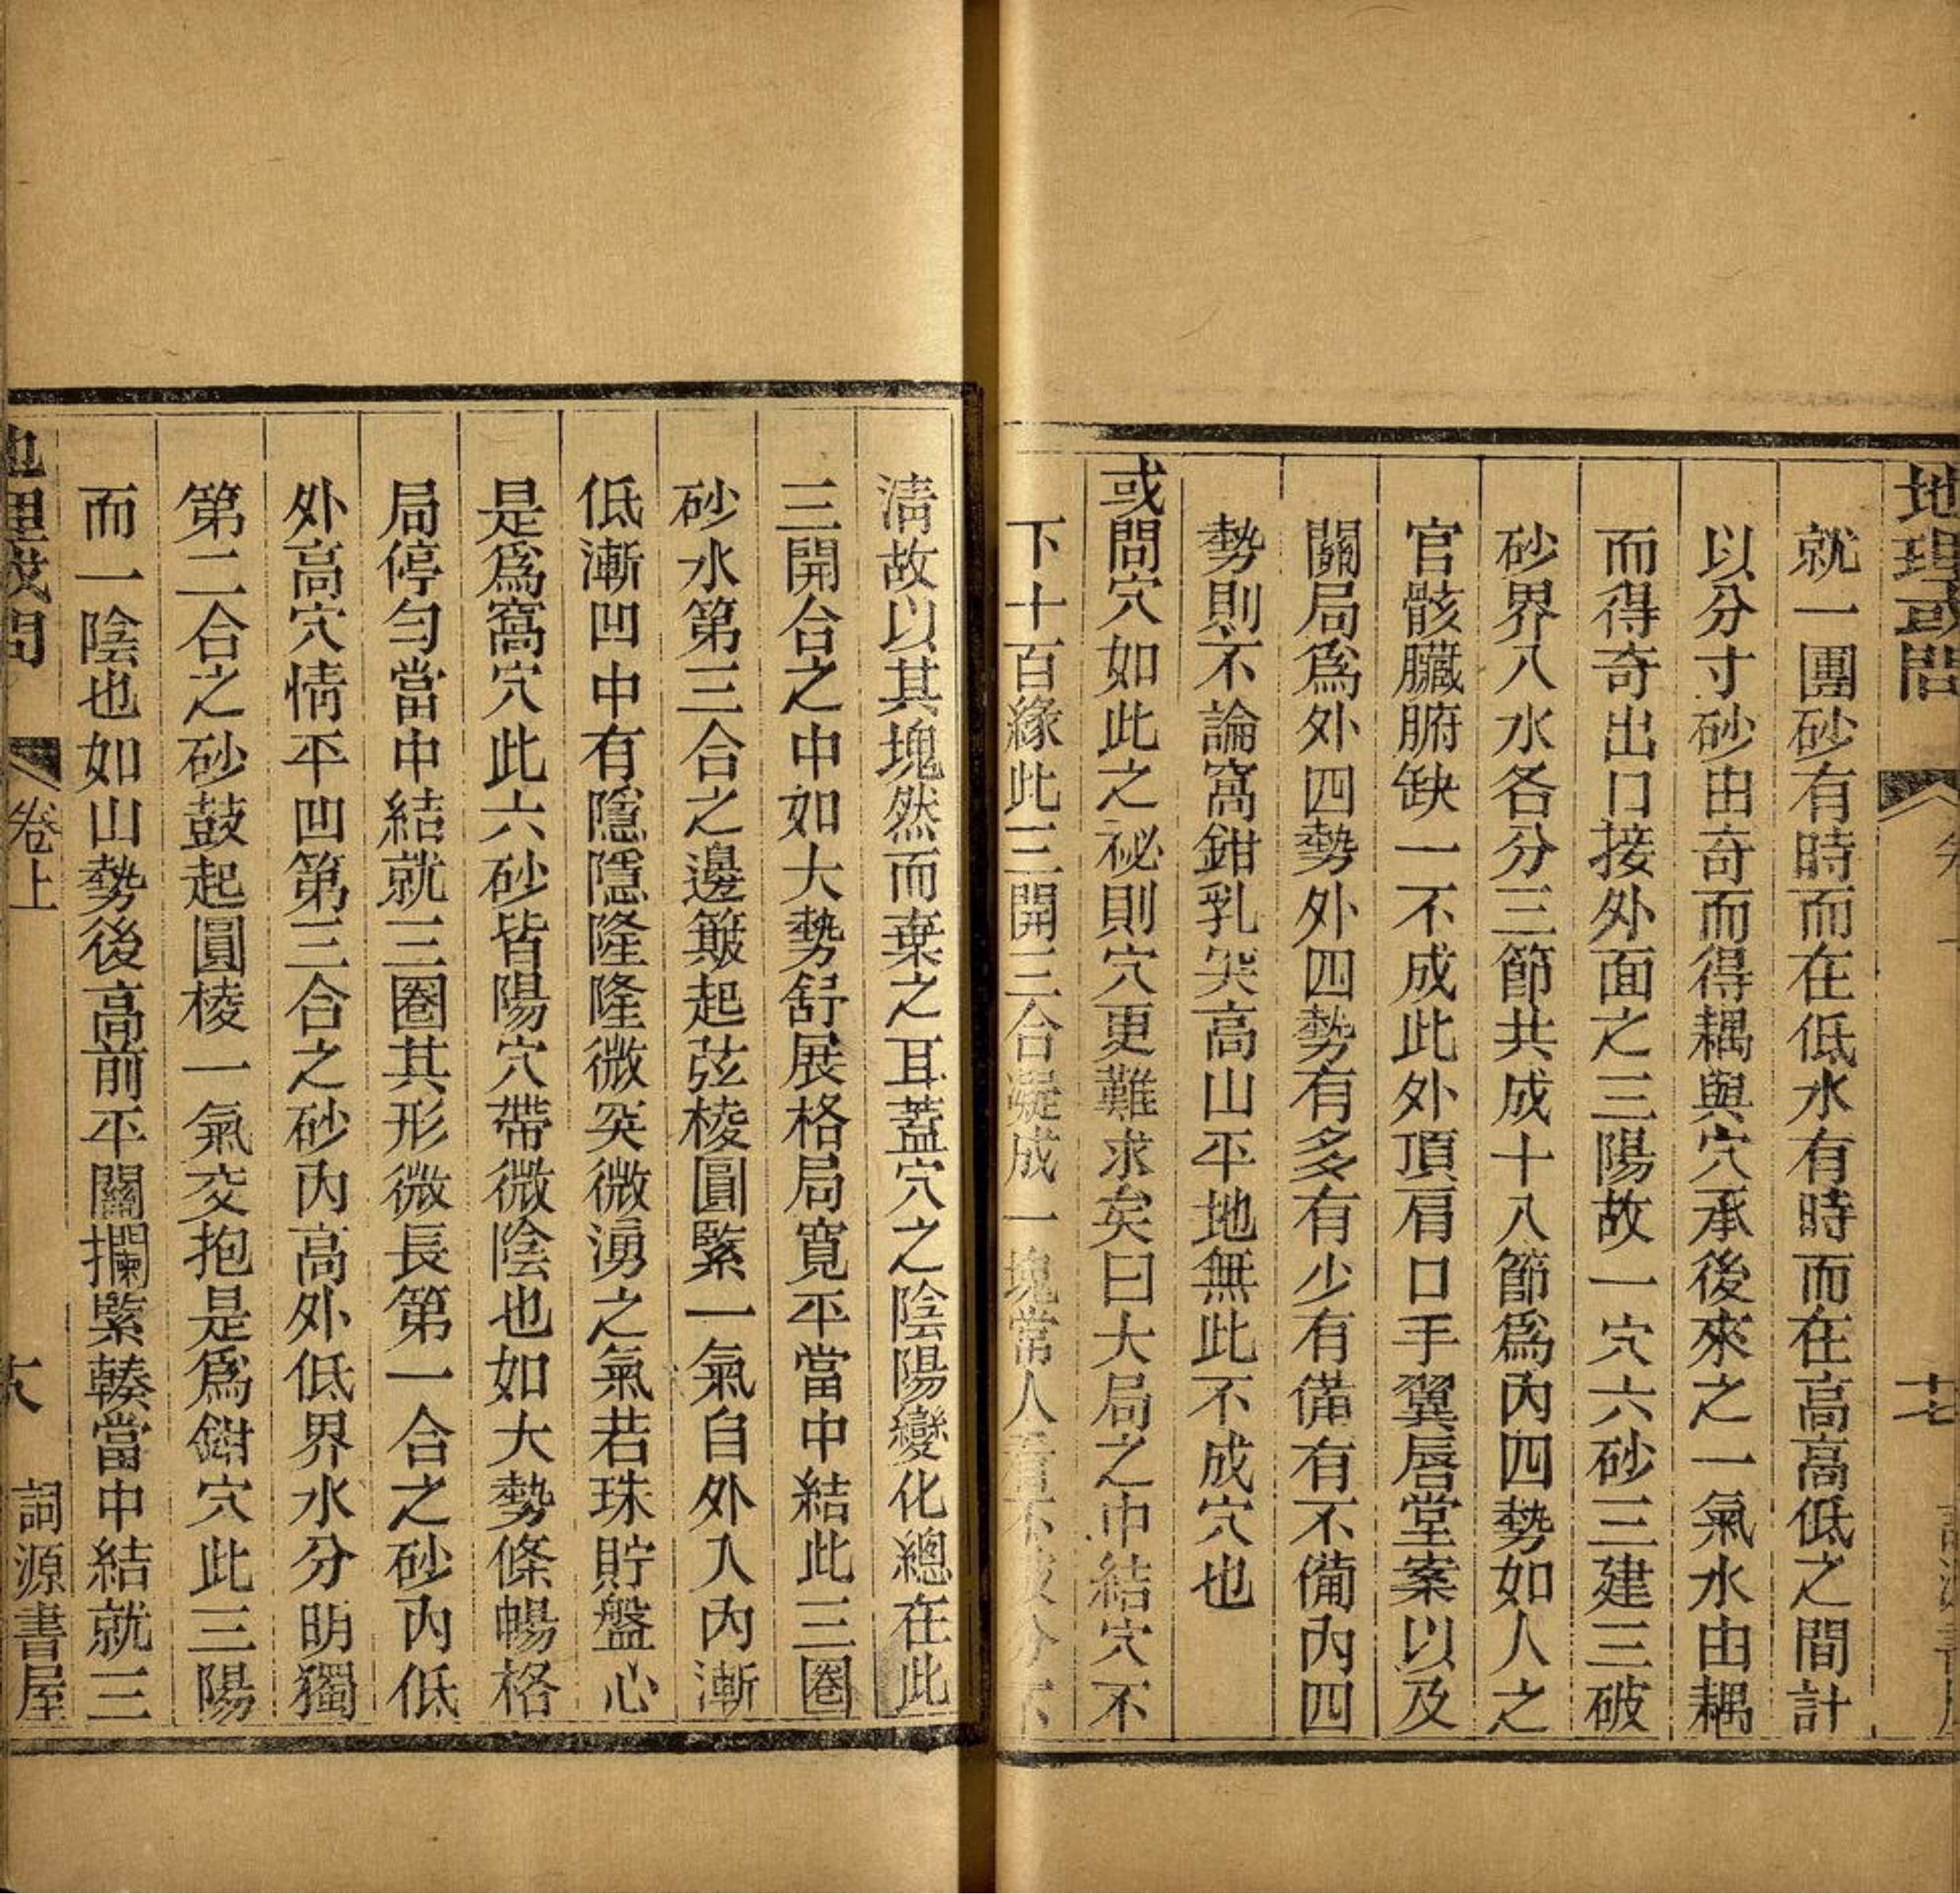 地理或問
十七
就一團砂有時而在低水有時而在高高低之間計
以分寸砂由奇而得耦與穴承後來之一氣水由耦
而得奇出口接外面之三陽故一穴六砂三建三破
砂界八水各分三節共成十八節爲內四勢如人之
官骸臟腑缺一不成此外頂肩口手翼唇堂案以及
關局爲外四勢外四勢有多有少有備有不備內四
勢則不論窩鉗乳突高山平地無此不成穴也
或問穴如此之祕則穴更難求矣曰大局之中結穴不
下十百緣此三開三合凝成一塊常人看不分下
淸故以其塊然而棄之耳蓋穴之陰陽變化總在此
三開合之中如大勢舒展格局寬平當中結此三圈
砂水第三合之邊簸起弦棱圓緊一氣自外入內漸
低漸凹中有隱隱隆隆微突微湧之氣若珠貯盤心
是爲窩穴此六砂皆陽穴帶微陰也如大勢條暢格
局停勻當中結就三圈其形微長第一合之砂內低
外高穴情平凹第三合之砂內高外低界水分明獨
第二合之砂鼓起圓棱一氣交抱是爲鉗穴此三陽
而一陰也如山勢後高前平關攔緊輳當中結就三
地理或問
卷上
詞源書屋